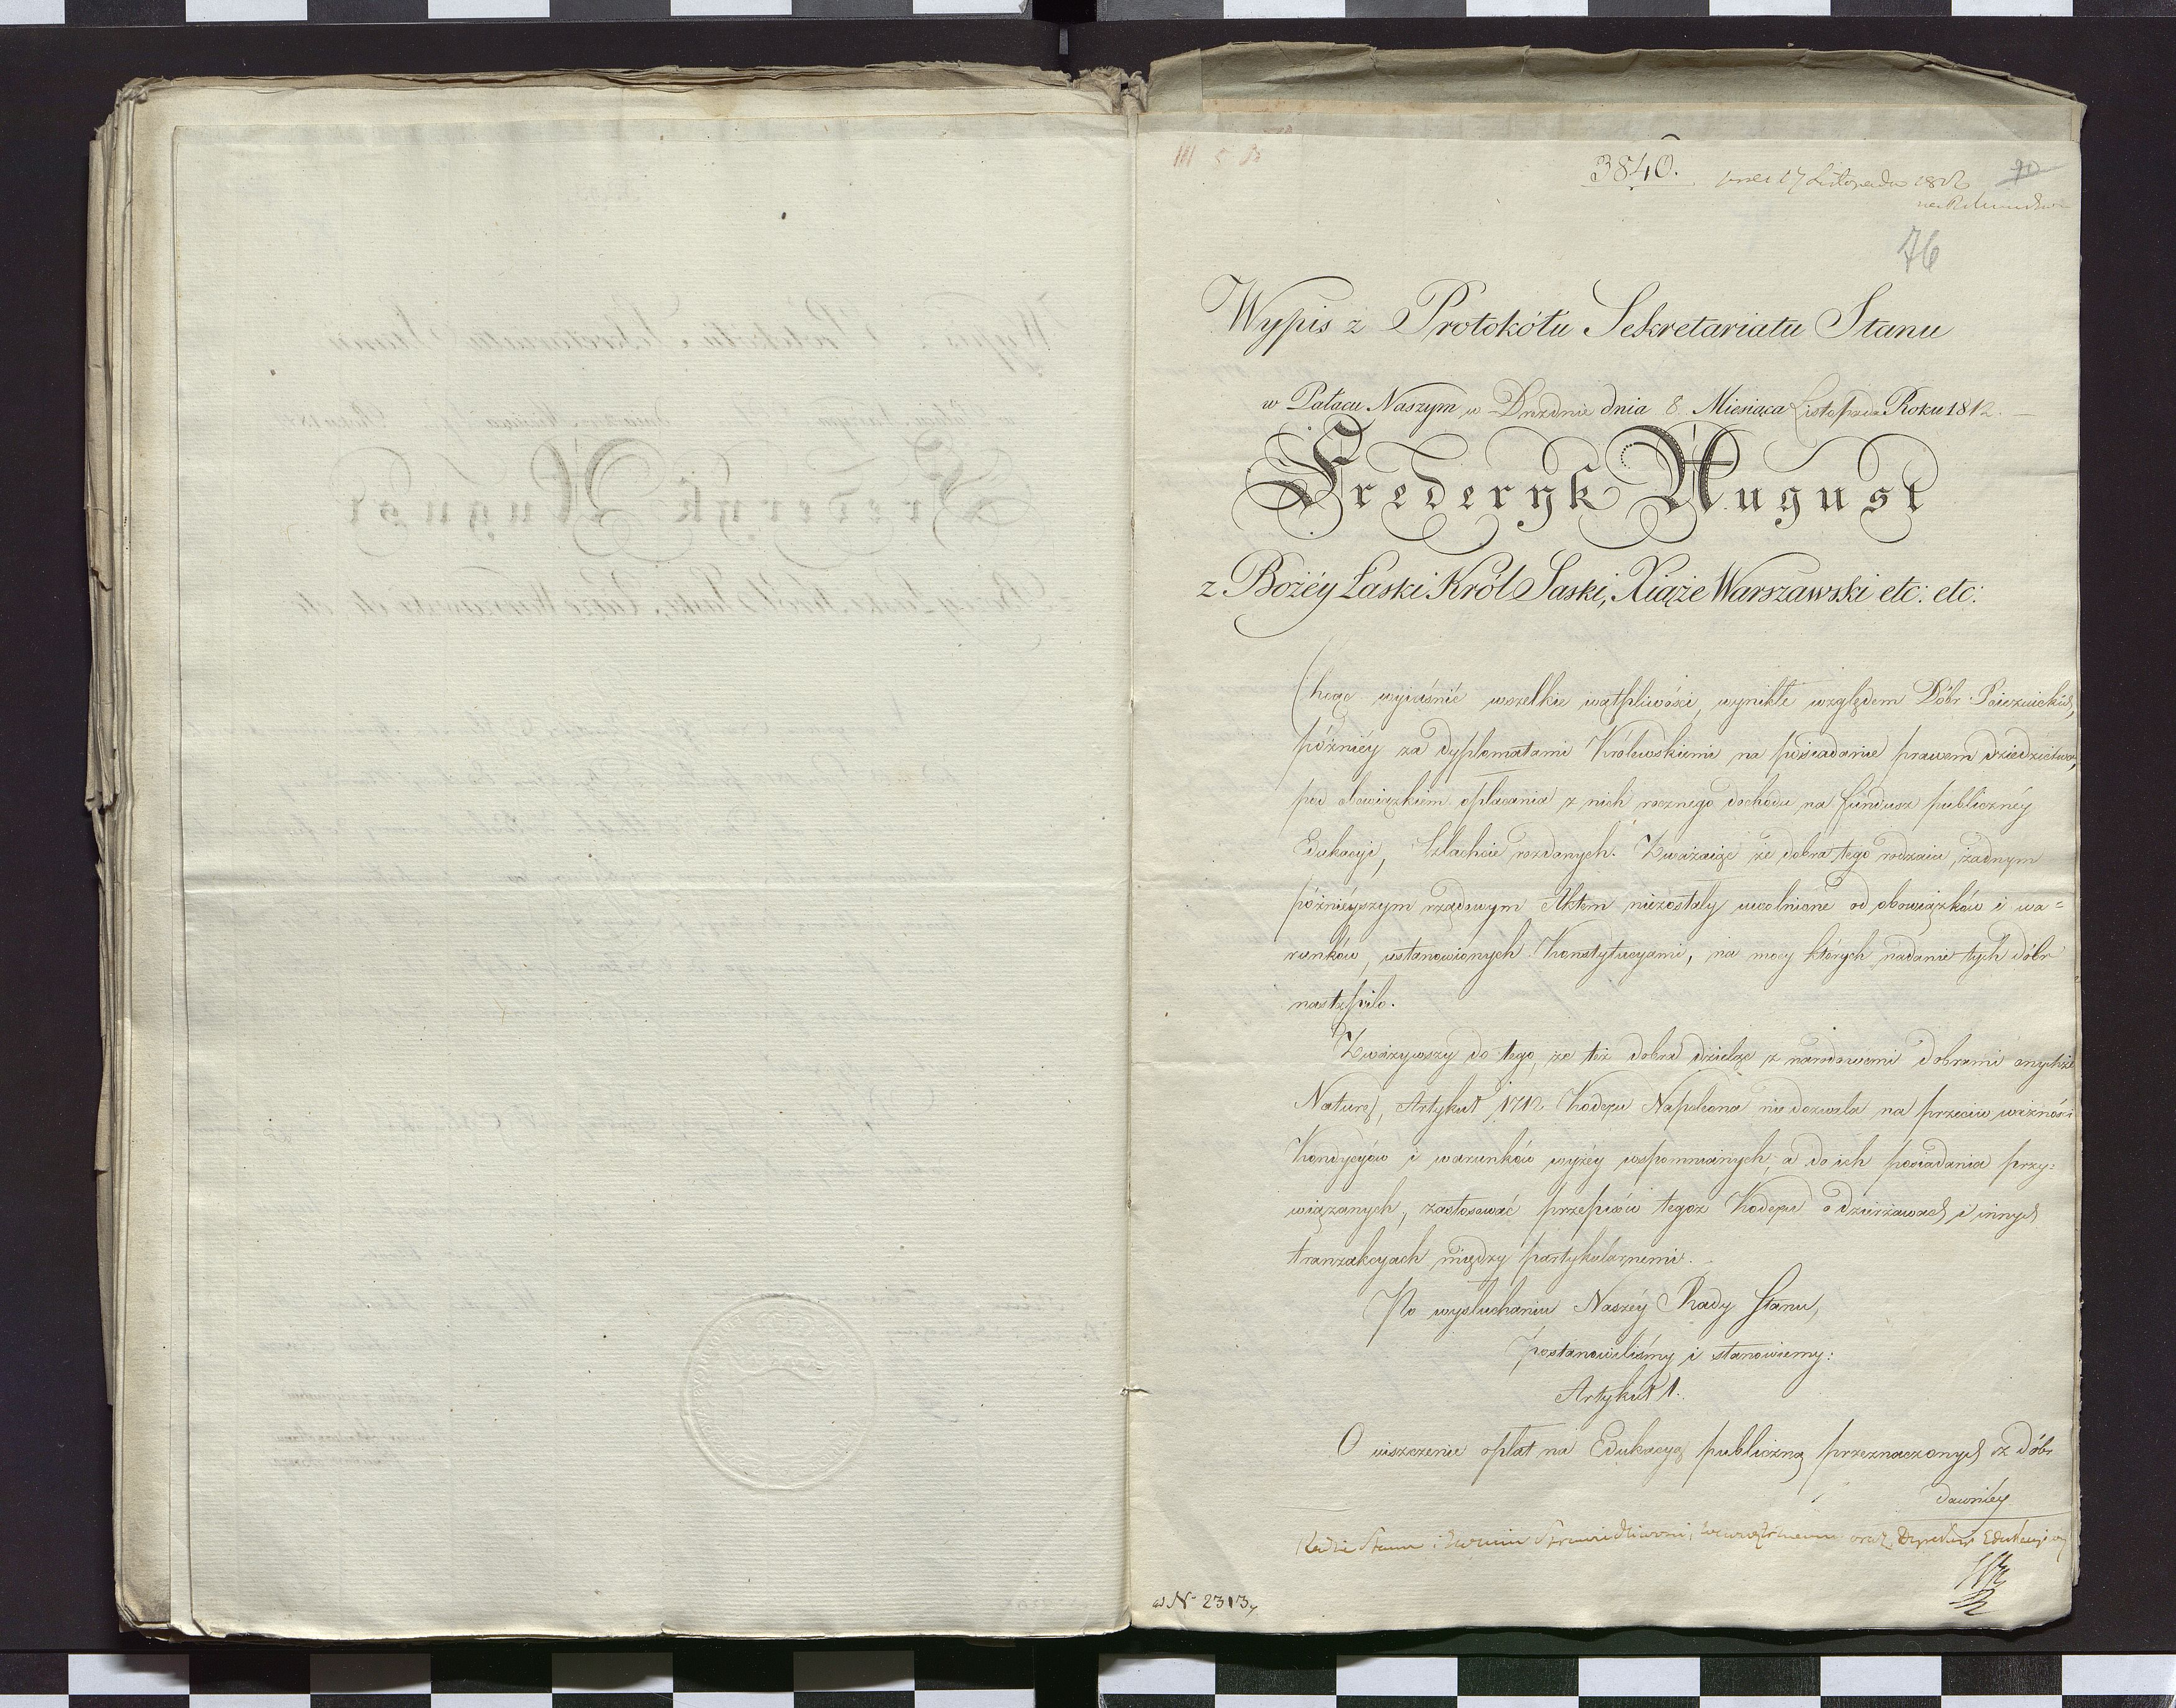 3840.
17 Listopada 1812
76
Wypis z Protokółu Sekretariatu Stanu
w Pałacu Naszym w Dreźnie dnia 8 Miesiąca Listopada Roku 1812.
Frederyk August
z Bożéy Łaski Król Saski, Xiąże Warszawski etc: etc:
Chcąc wyjaśnić wszelkie wątpliwości, wynikłe względem Dóbr Pojezuickich,
późniéy za dyplomatami Królewskiemi na posiadanie prawem dziedzictwa,
pod obowiązkiem opłacania z nich rocznego dochodu na fundusz publicznéy
Edukacyi, Szlachcie rozdanych. Zważaiąc że dobra tego rodzaiu, żadnym
późnieyszym rządowym Aktem niezostały uwolnione od obowiązków i wa=
runków, ustanowionych Konstytucyami, na mocy których nadanie tych dóbr
nastąpiło.
Zważywszy do tego, że też dobra dzieląc z narodowemi dobrami onychże
Naturę, Artykuł 1712 Kodexu Napoleona nie dozwala na przeciw ważności
Kondycyów i warunków wyżéy wspomnianych, a do ich posiadania przy=
wiązanych, zastosować przepisów tegoż Kodexu o dzierżawach i innych
tranzakcyach między partykularnemi.
Po wysłuchaniu Naszéy Rady Stanu,
postanowiliśmy i stanowiemy:
Artykuł 1.
O uiszczenie opłat na Edukacyą publiczną przeznaczonych z dóbr
dawniéy
Radzie Stanu i Sprawiedliwości, wewnętrznemu oraz Edukacyi
N 2313